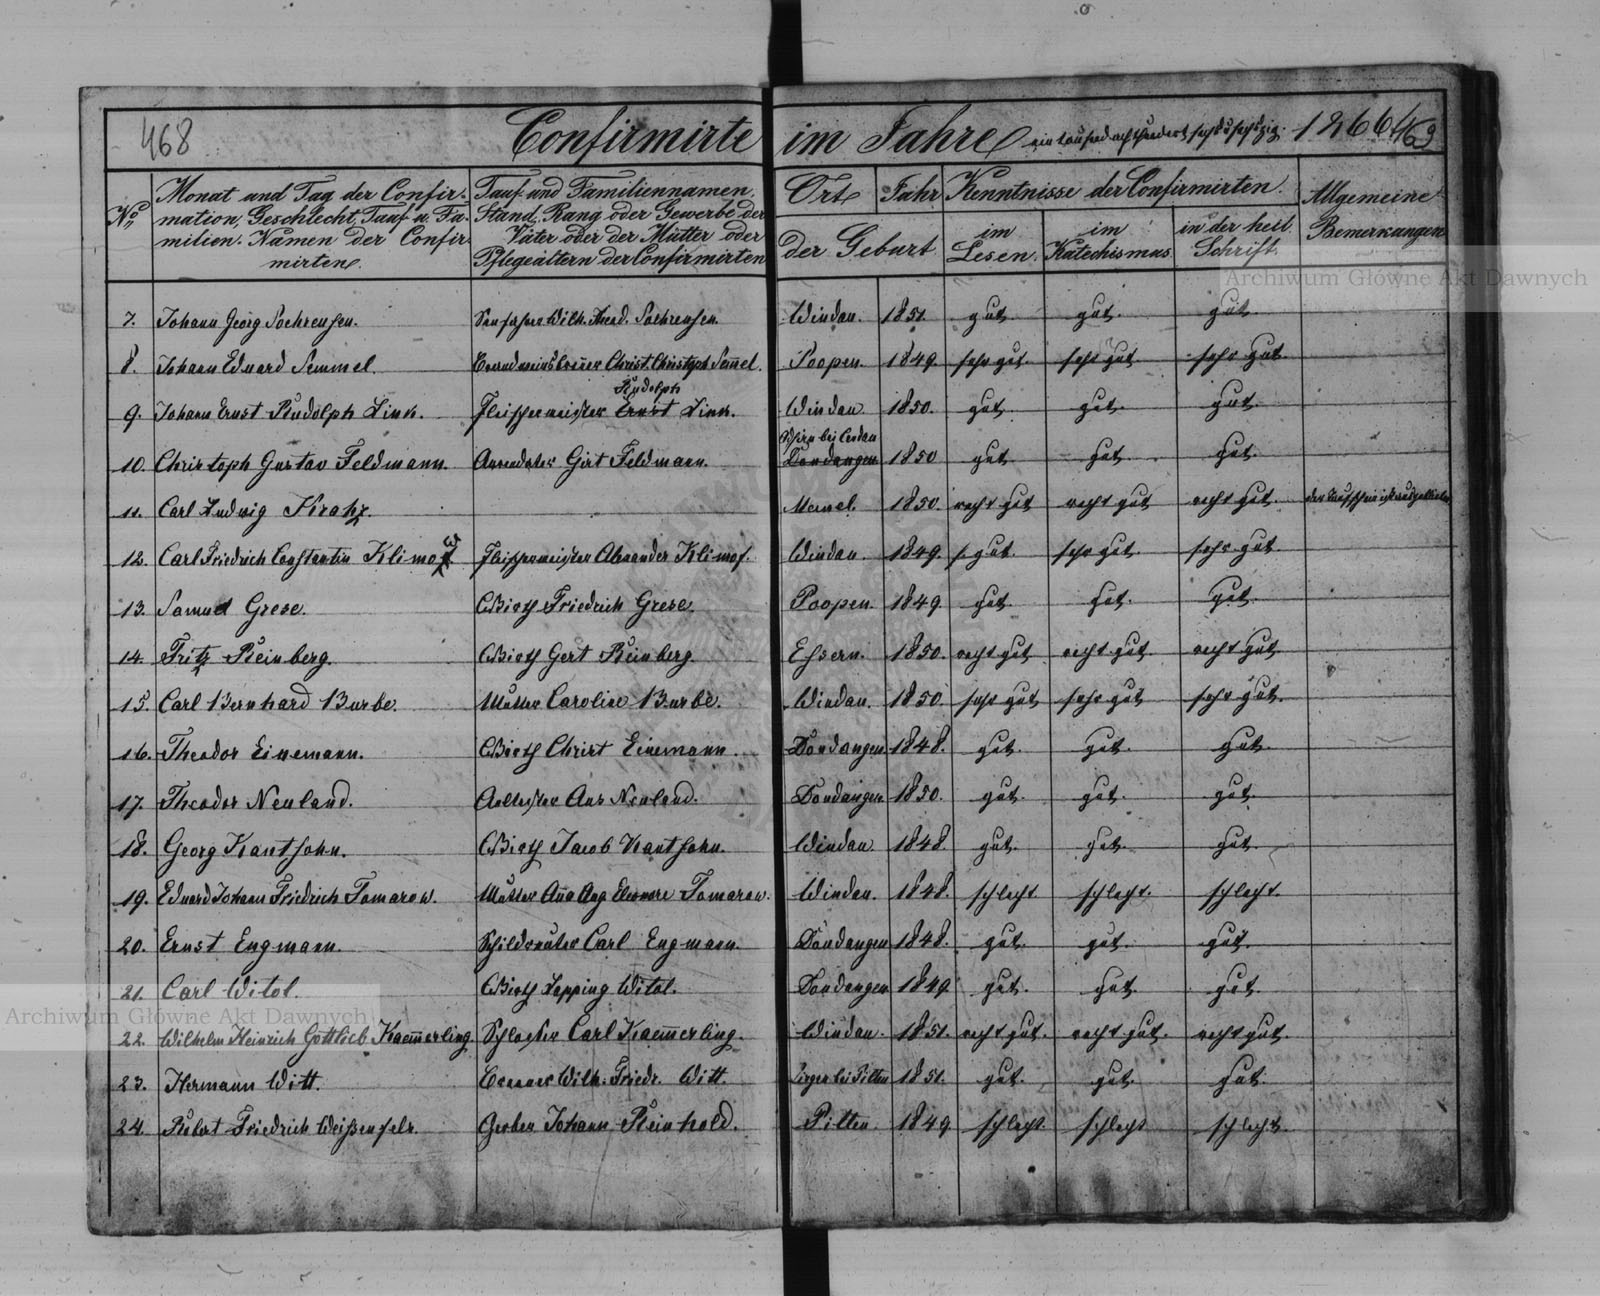 468
Confirmirte im Jahre ein tausend achthundert sechs u sechszig. 1866
469
No
Monat und Tag der Confir-
mation, Geschlecht, Tauf u. Fa-
milien. Namen der Confir-
mirten.
Tauf- und Familiennamen,
Stand, Rang oder Gewerbe der
Väter oder der Mütter oder
Pflegeältern der Confirmirten
Ort
Jahr
der Geburt.
Kenntnisse der Confirmirten.
im
Lesen.
im
Katechismus
in der heil.
Schrift.
Allgemeine
Bemerkungen
7. Johann Georg Soehrensen. Wilh. Theod. Soehrensen. Windau. 1851. gut. gut. gut.
8. Johann Eduard Semmel. Christ. Christoph Sem̄el. Poopen. 1849. sehr gut. sehr gut. sehr gut.
Rudolph
9. Johann Ernst Rudolph Link. Fleischermeister Ernst Link. Windau. 1850. gut. gut. gut.
bei
10. Christoph Gustav Feldmann. Arrendator Girt Feldmann. Dondangen 1850 gut. gut. gut.
11. Carl Ludwig Kratz. Memel. 1850. recht gut recht gut recht gut.
w
12. Carl Friedrich Constantin Klimof Fleischermeister Alexander Klimof. Windau. 1849. s. gut. sehr gut. sehr gut.
13. Samuel Grese. Wirth Friedrich Grese. Poopen. 1849 gut. gut. gut.
14. Fritz Reinberg. Wirth Gert Reinberg. 1850. recht gut recht gut. recht gut.
15. Carl Bernhard Burbe. Mutter Caroline Burbe. Windau. 1850. sehr gut sehr gut sehr gut.
16. Theodor Einemann. Wirth Christ Einemann. Dondangen 1848. gut. gut. gut.
17. Theodor Neuland. Ans Neuland. Dondangen 1850. gut. gut. gut.
18. Georg Kantsohn. Wirth Jacob Kantsohn. Windau. 1848. gut. gut. gut.
19. Eduard Johann Friedrich Tomarow. Mutter Eleonore Tomarow. Windau. 1848. schlecht. schlecht. schlecht.
20. Ernst Engmann. Carl Engmann. Dondangen 1848. gut. gut. gut.
21. Carl Witol. Wirth Lapping Witol. Dondangen 1849. gut. gut. gut.
22. Wilhelm Heinrich Gottlieb Kaem̄erling. Schlosser Carl Kaem̄erling. Windau. 1851. recht gut. recht gut. recht gut.
23. Hermann Witt. Wilh. Friedr. Witt. bei Pilten 1851. gut. gut. gut.
24. Robert Friedrich Weißenfels. Gerber Johann Reinhold. Pilten. 1849 schlecht schlecht schlecht.
Archiwum Główne Akt Dawnych
Archiwum Główne Akt Dawnych